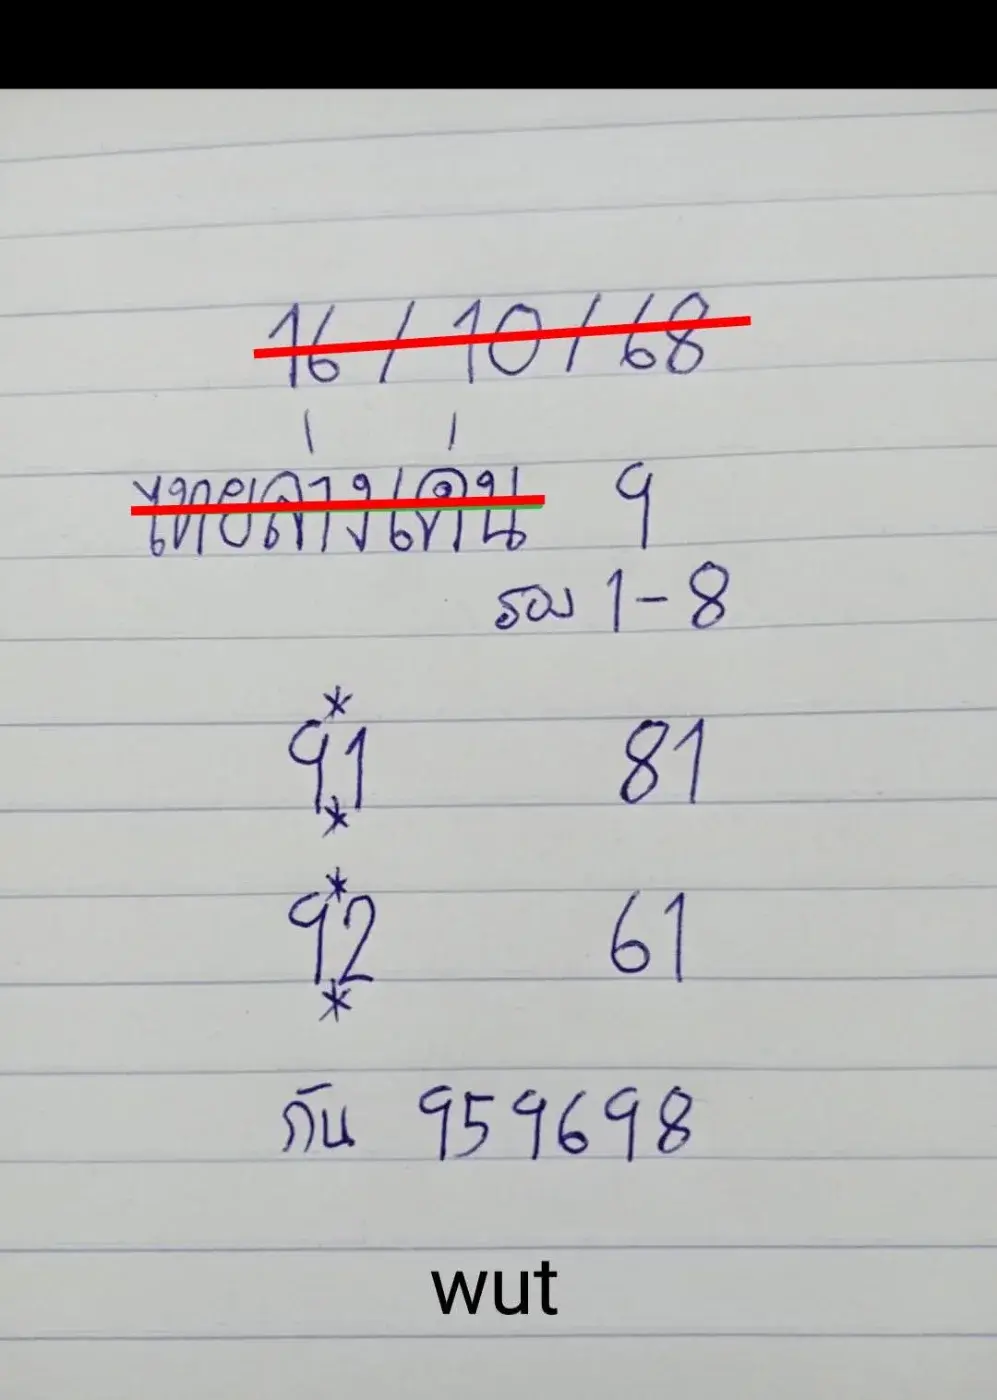 16/10/68
ไทยล่างเด่น 9
รอง 1-8
*
91 81
*
*
92 61
*
กัน 959698
wut